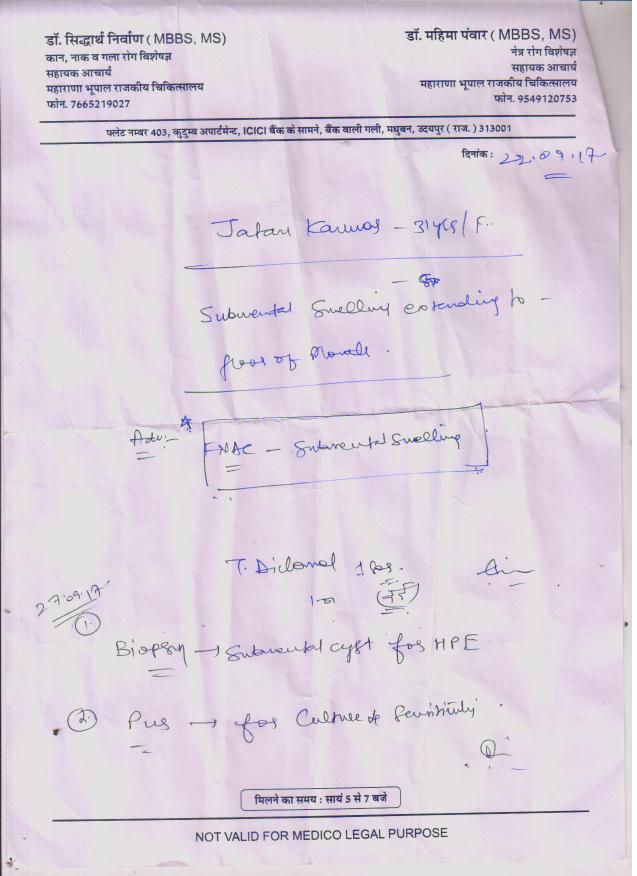 डॉ. सिद्धार्थ निर्वाण ( MBBS, MS)
कान, नाक व गला रोग विशेषज्ञ
सहायक आचार्य
महाराणा भूपाल राजकीय चिकित्सालय
फोन. 7665219027
डॉ. महिमा पंवार ( MBBS, MS)
नेत्र रोग विशेषज्ञ
सहायक आचार्य
महाराणा भूपाल राजकीय चिकित्सालय
फोन. 9549120753
फ्लेट नम्बर 403, कुटुम्ब अपार्टमेन्ट, ICICI बैंक के सामने, बैंक वाली गली, मधुबन, उदयपुर ( राज. ) 313001
दिनांक : 22.09.17
31yrs/F..
Submental Swelling extending to -
floor of Mouth.
Adv:-
FNAC - Submental Swelling
T. Diclonal
27.09.17
1. Biopsy → Submental cyst for HPE
2. Pus → for Culture & Sensitivity.
मिलने का समय : सायं 5 से 7 बजे
NOT VALID FOR MEDICO LEGAL PURPOSE